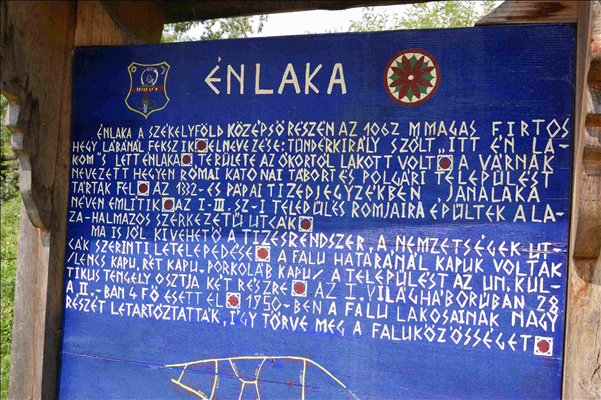 ÉNLAKA
ÉNLAKA A SZÉKELYFÖLD KÖZÉPSŐ RÉSZÉN AZ 1062 M MAGAS FIRTOS
HEGY LÁBÁNÁL FEKSZIK ELNEVEZÉSE: TÜNDÉRKIRÁLY SZÓLT „ITT ÉN LA-
KOM" S LETT ÉNLAKA, TERÜLETE AZ ÓKORTÓL LAKOTT VOLT A VÁRNAK
NEVEZETT HEGYEN RÓMAI KATONAI TÁBORT ÉS POLGÁRI TELEPÜLÉST
TÁRTAK FEL AZ 1332-ES PÁPAI TIZEDJEGYZÉKBEN, JÁNALAKA
NÉVEN EMLÍTIK AZ I-III. SZ-I TELEPÜLÉS ROMJAIRA ÉPÜLTEK A LA-
ZA-HALMAZOS SZERKEZETŰ UTCÁK
MA IS JÓL KIVEHETŐ A TIZESRENDSZER, A NEMZETSÉGEK UT-
CÁK SZERINTI LETELEPEDÉSE A FALU HATÁRÁNÁL KAPUK VOLTAK
/LENCS KAPU, RÉT KAPU, PORKOLÁB KAPU/ A TELEPÜLÉST AZ UN. KUL-
TIKUS TENGELY OSZTJA KÉT RÉSZRE AZ I. VILÁGHÁBORÚBAN 28
A II.-BAN 4 FŐ ESETT EL 1950-BEN A FALU LAKÓSAINAK NAGY
RÉSZÉT LETARTÓZTATTÁK, ÍGY TÖRVE MEG A FALUKÖZÖSSÉGET